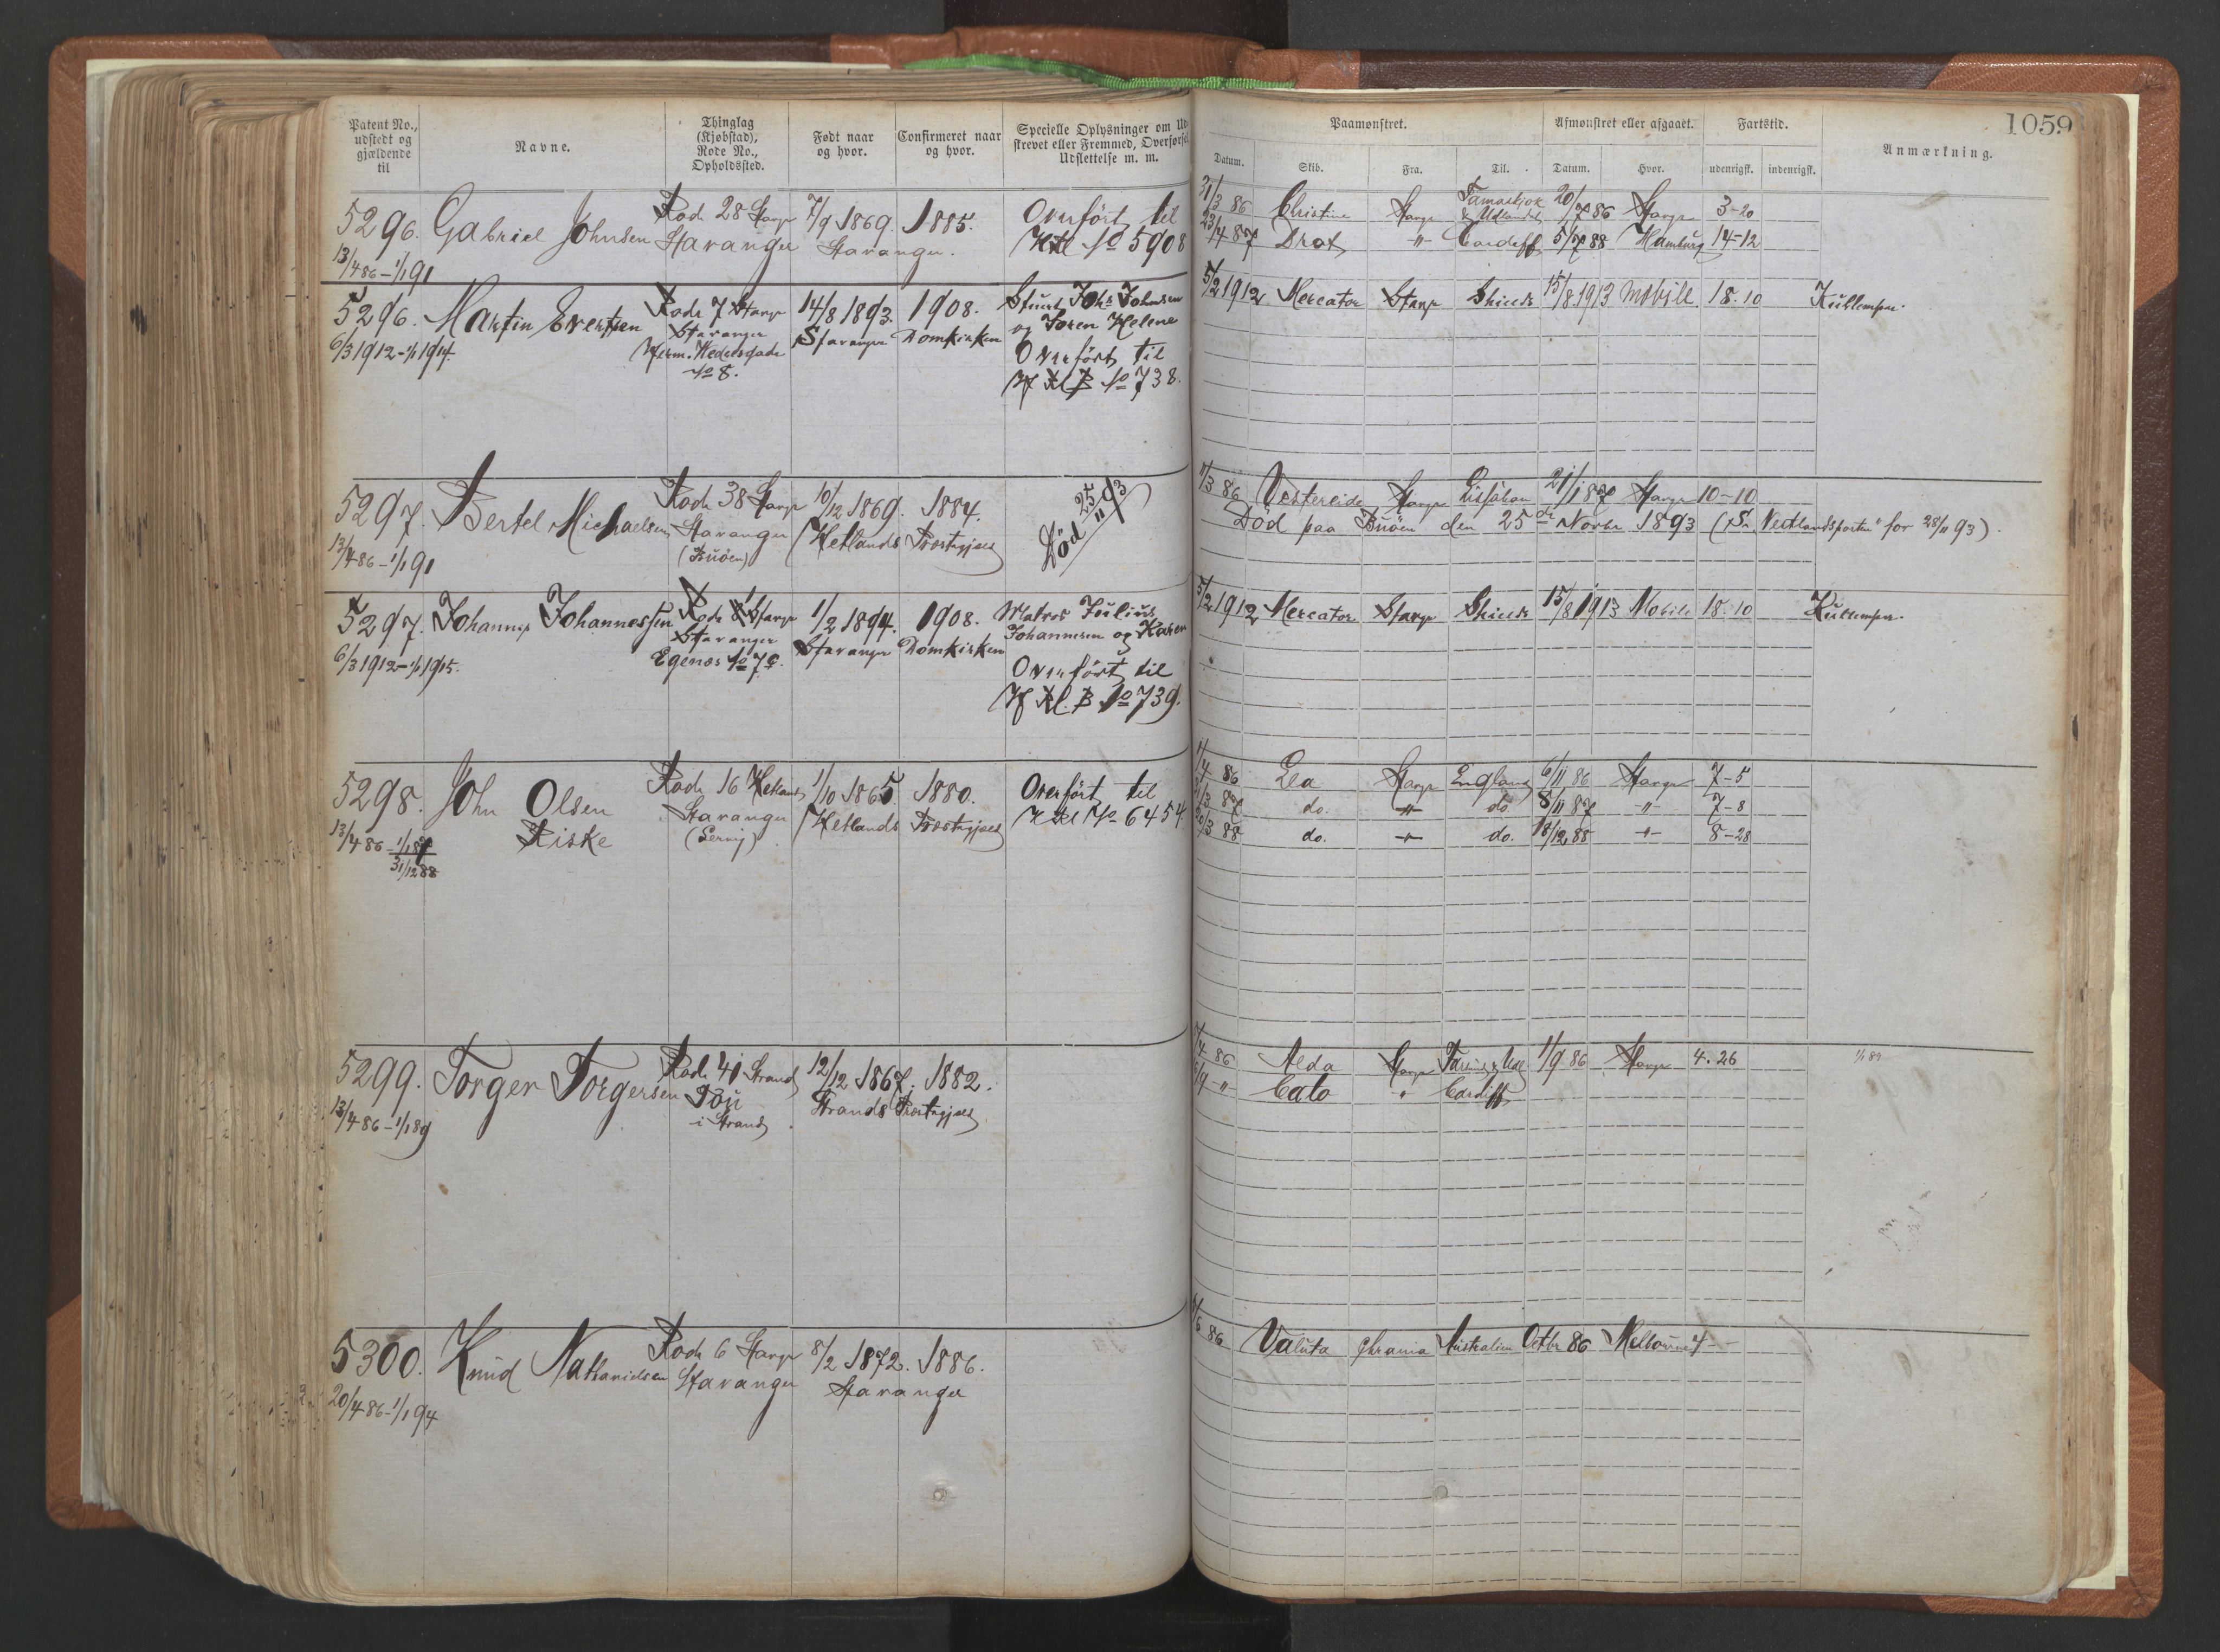 Patent No.,
udstedt og
gjældende
til
Navne.
Thinglag
(Kjøbstad),
Rode No.,
Opholdssted.
Født naar
og hvor.
Confirmeret naar
og hvor.
Specielle Oplysninger om Ud-
skrevet eller Fremmed, Overførsel
Udslettelse m. m.
Paamønstret.
Datum.
Skib.
Fra.
Til.
Afmønstret eller afgaaet.
Datum.
Hvor.
Fartstid.
udenrigsk.
indenrigsk.
Anmærkning.
1059
5296. Gabriel Johnsen Rode 28 Stavgr 7/9 1869. 1885. Overført til
13/4 86 – 1/1 91 Stavanger Stavanger. No 5908
31/3 86 Christine Stavgr & Udlandet 20/7 86 Stavgr 3-20
23/4 87 Drot " Cardiff 5/7 88 Hamburg 14-12
5296. Martin Evertsen Rode 7 Stavgr 14/8 1893. 1908. Johs Johnsen
6/3 1912 – 1/1 1914. Stavanger Stavanger Domkirken og Helene
Herm. Wedelsgade
No 8.
Overført til
B No 738.
5/2 1912 Mercator Stavgr Shields 15/8 1913 Mobile 18-10
5297. Bertel Michaelsen Rode 38 Stavgr 10/12 1869. 1884.
13/4 86 – 1/1 91 Stavanger Hetlands Præstegjæld
(Buøen)
Død 25/11 93
11/3 86 Stavgr 21/1 87 Stavgr 10-10
Død paa Buøen den 25de Novbr 1893 ( "Vestlandsposten" for 28/11 93).
5297. Johannes Johannessen Rode 8 Stavgr 1/2 1894. 1908. Matros Julius
6/3 1912 – 1/1 1915. Stavanger Stavanger Domkirken Johannesen og Karen
Egenæs No 7
Overført til
B No 739.
5/2 1912 Mercator Stavgr Shields 15/8 1913 Mobile 18-10
5298. John Olsen Rode 16 Hetland 1/10 1865. 1880. Overført til
Riske
13/4 86 – 1/1 87 Stavanger Hetlands Præstegjæld No 6454
31/12 88
1/4 86 Lea Stavgr England 6/11 86 Stavgr 7-5
/3 87 do. " do. 8/11 87 " 7-8
20/3 88 do. " do. 18/12 88 " 8-28
5299. Torger Torgersen Rode 41 Strand 12/12 1867. 1882.
13/4 86 – 1/1 89 Tou Strands Præstegjæld
i Strand
/4 86 Alda Stavgr 1/9 86 Stavgr 4.26
/9 " Cato " Cardiff
5300. Knud Nathanielsen Rode 6 Stavgr 8/2 1872. 1886.
20/4 86 – 1/1 94 Stavanger Stavanger
/6 86 Valuta Australien Octbr 86 Melbourne 4 –